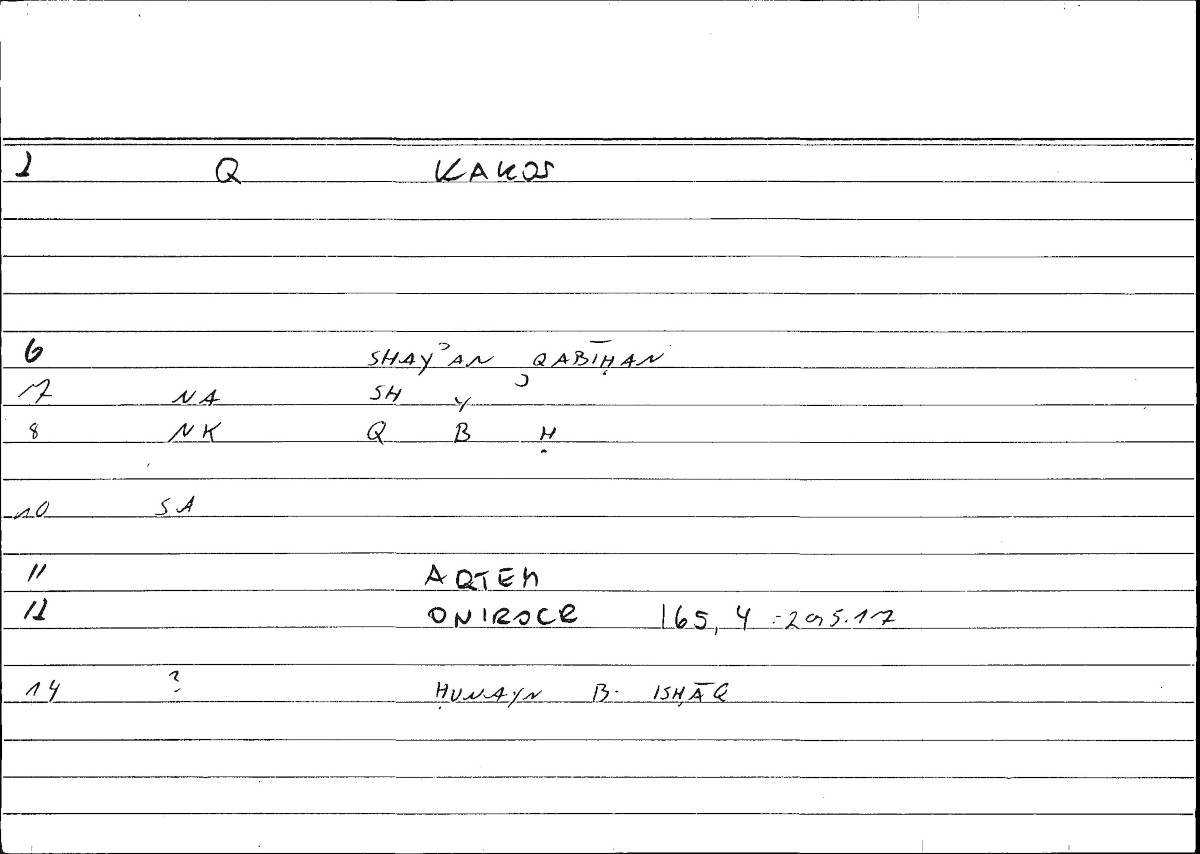 1 Q KAKOS
6 SHAYʾAN QABĪḤAN
7 NA SH Y ʾ
8 NK Q B Ḥ
10 SA
11 ARTEM
12 ONIROCR 165, 4 = 295.17
14 ? ḤUNAYN B. ISḤĀQ